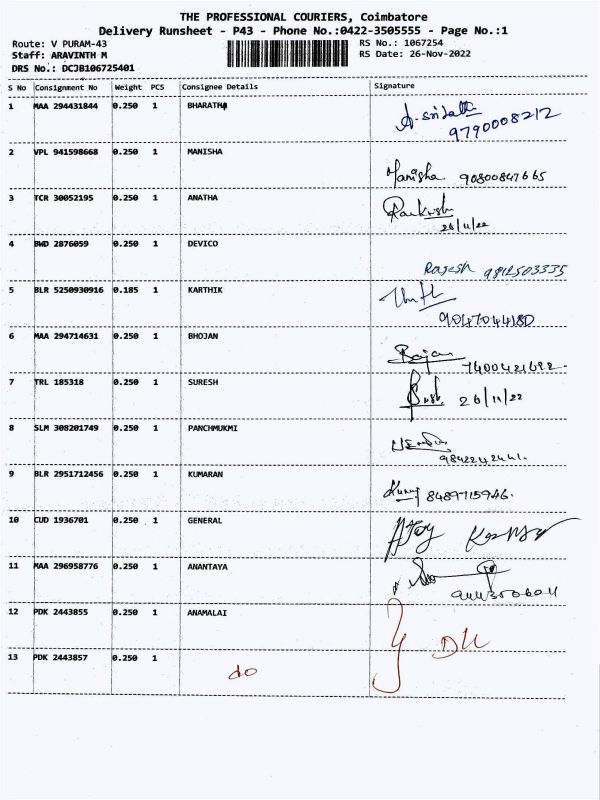 THE PROFESSIONAL COURIERS, Coimbatore
Delivery Runsheet - P43 - Phone No.:0422-3505555 - Page No.:1
Route: V PURAM-43
RS No.: 1067254
Staff: ARAVINTH M
RS Date: 26-Nov-2022
DRS No.: DCJB106725401
S No Consignment No Weight PCS Consignee Details Signature
1 MAA 294431844 0.250 1 BHARATHA
9790008212
2 VPL 941598668 0.250 1 MANISHA
Manisha 90800847665
3 TCR 30052195 0.250 1 ANATHA
26/11/22
4 BWD 2876059 0.250 1 DEVICO
Rajesh 9812503335
5 BLR 5250930916 0.185 1 KARTHIK
9047044180
6 MAA 294714631 0.250 1 BHOJAN
Bojan
7 TRL 185318 0.250 1 SURESH
26/11/22
8 SLM 308201749 0.250 1 PANCHMUKMI
9842242441.
9 BLR 2951712456 0.250 1 KUMARAN
8489715946.
10 CUD 1936701 0.250 1 GENERAL
11 MAA 296958776 0.250 1 ANANTAYA
12 PDK 2443855 0.250 1 ANAMALAI
13 PDK 2443857 0.250 1
do